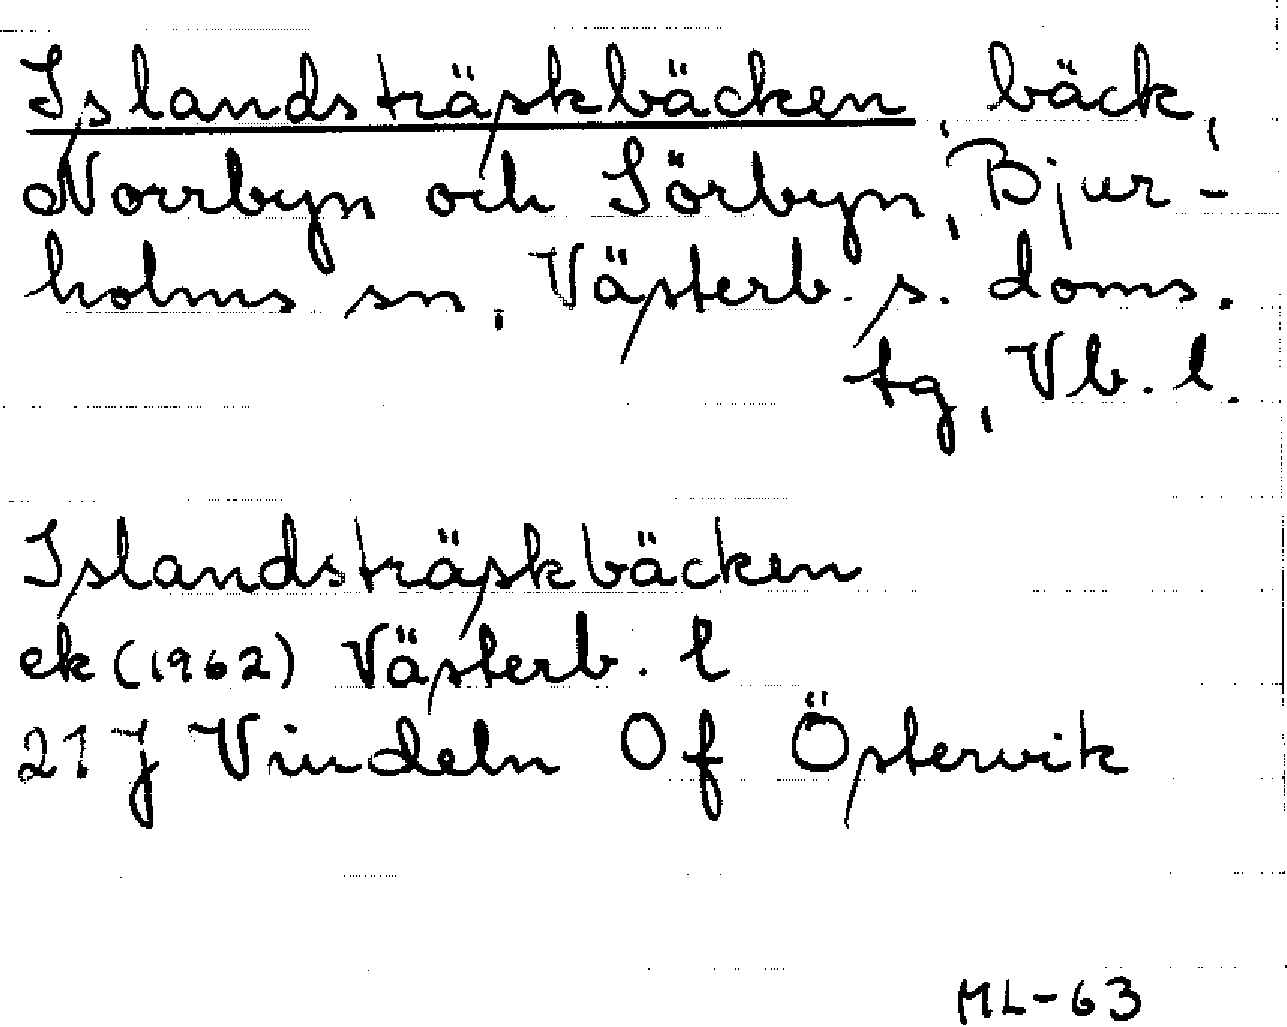 Islandsträskbäcken, bäck,
Norrbyn och Sörbyn, Bjur-
holms sn, Västerb. s. doms.
tg, Vb. l.
Islandsträskbäcken
ek (1962) Västerb. l
21 J Vindeln 0 f Östervik
ML-63